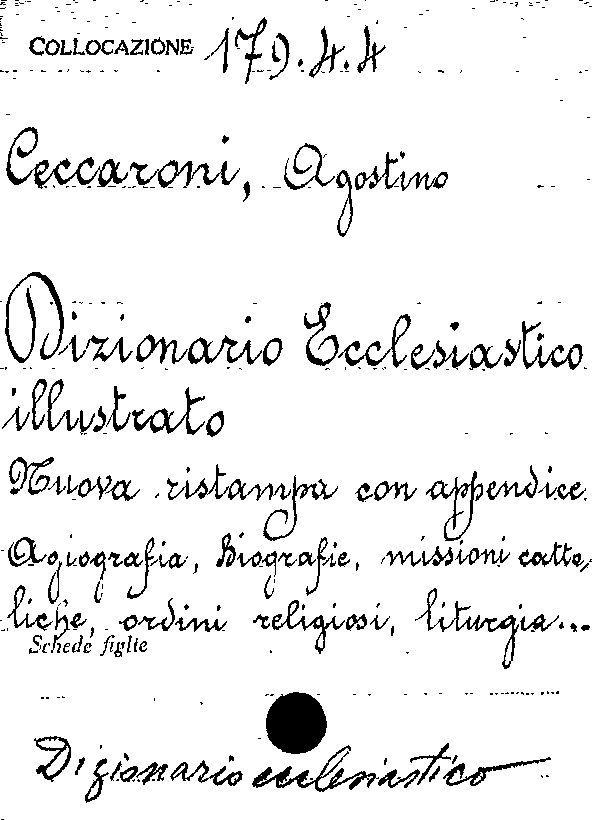 COLLOCAZIONE 179.4.4
Ceccaroni, Agostino
Dizionario Ecclesiastico
illustrato
Nuova ristampa con appendice.
Agiografia, Biografie, missioni catto,
liche, ordini religiosi, liturgia...
Schede figlie
Dizionario ecclesiastico